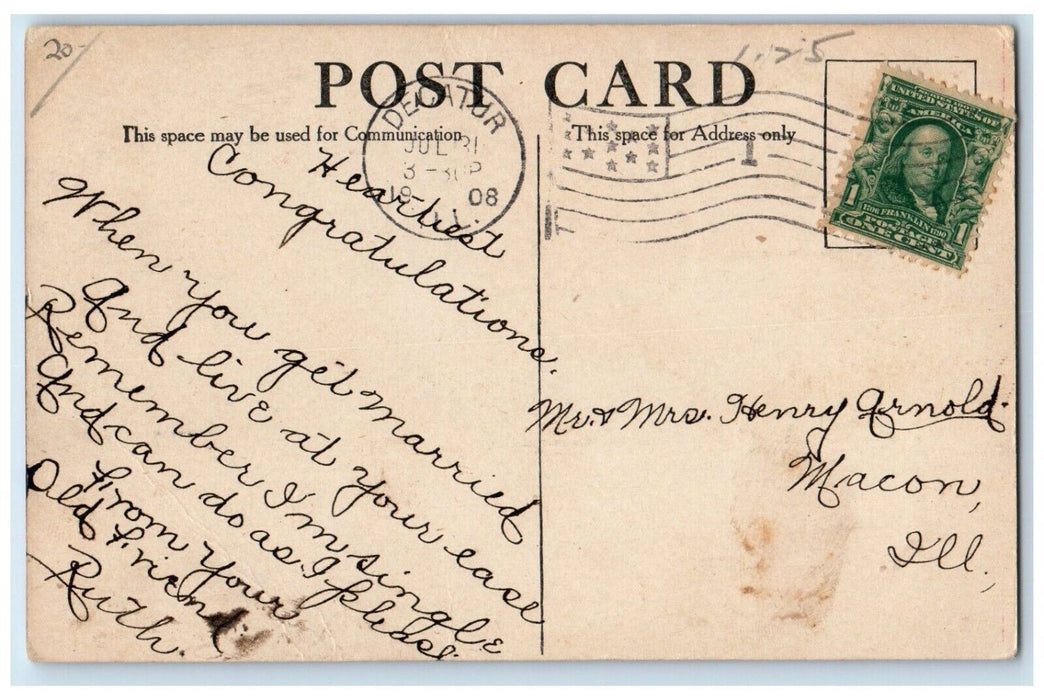 20-
1.25
POST CARD
This space may be used for Communication
This space for Address only
DECATUR
JUL 31
3-30P
1908
ILL.
1
UNITED STATES OF
AMERICA
1706 FRANKLIN 1790
POSTAGE
1 ONE CENT 1
Heartiest
Congratulations.
When you get married
And live at your ease
Remember I'm single
And can do as I please.
From your
Old Friend
Ruth.
Mr. & Mrs. Henry Arnold.
Macon,
Ill.,